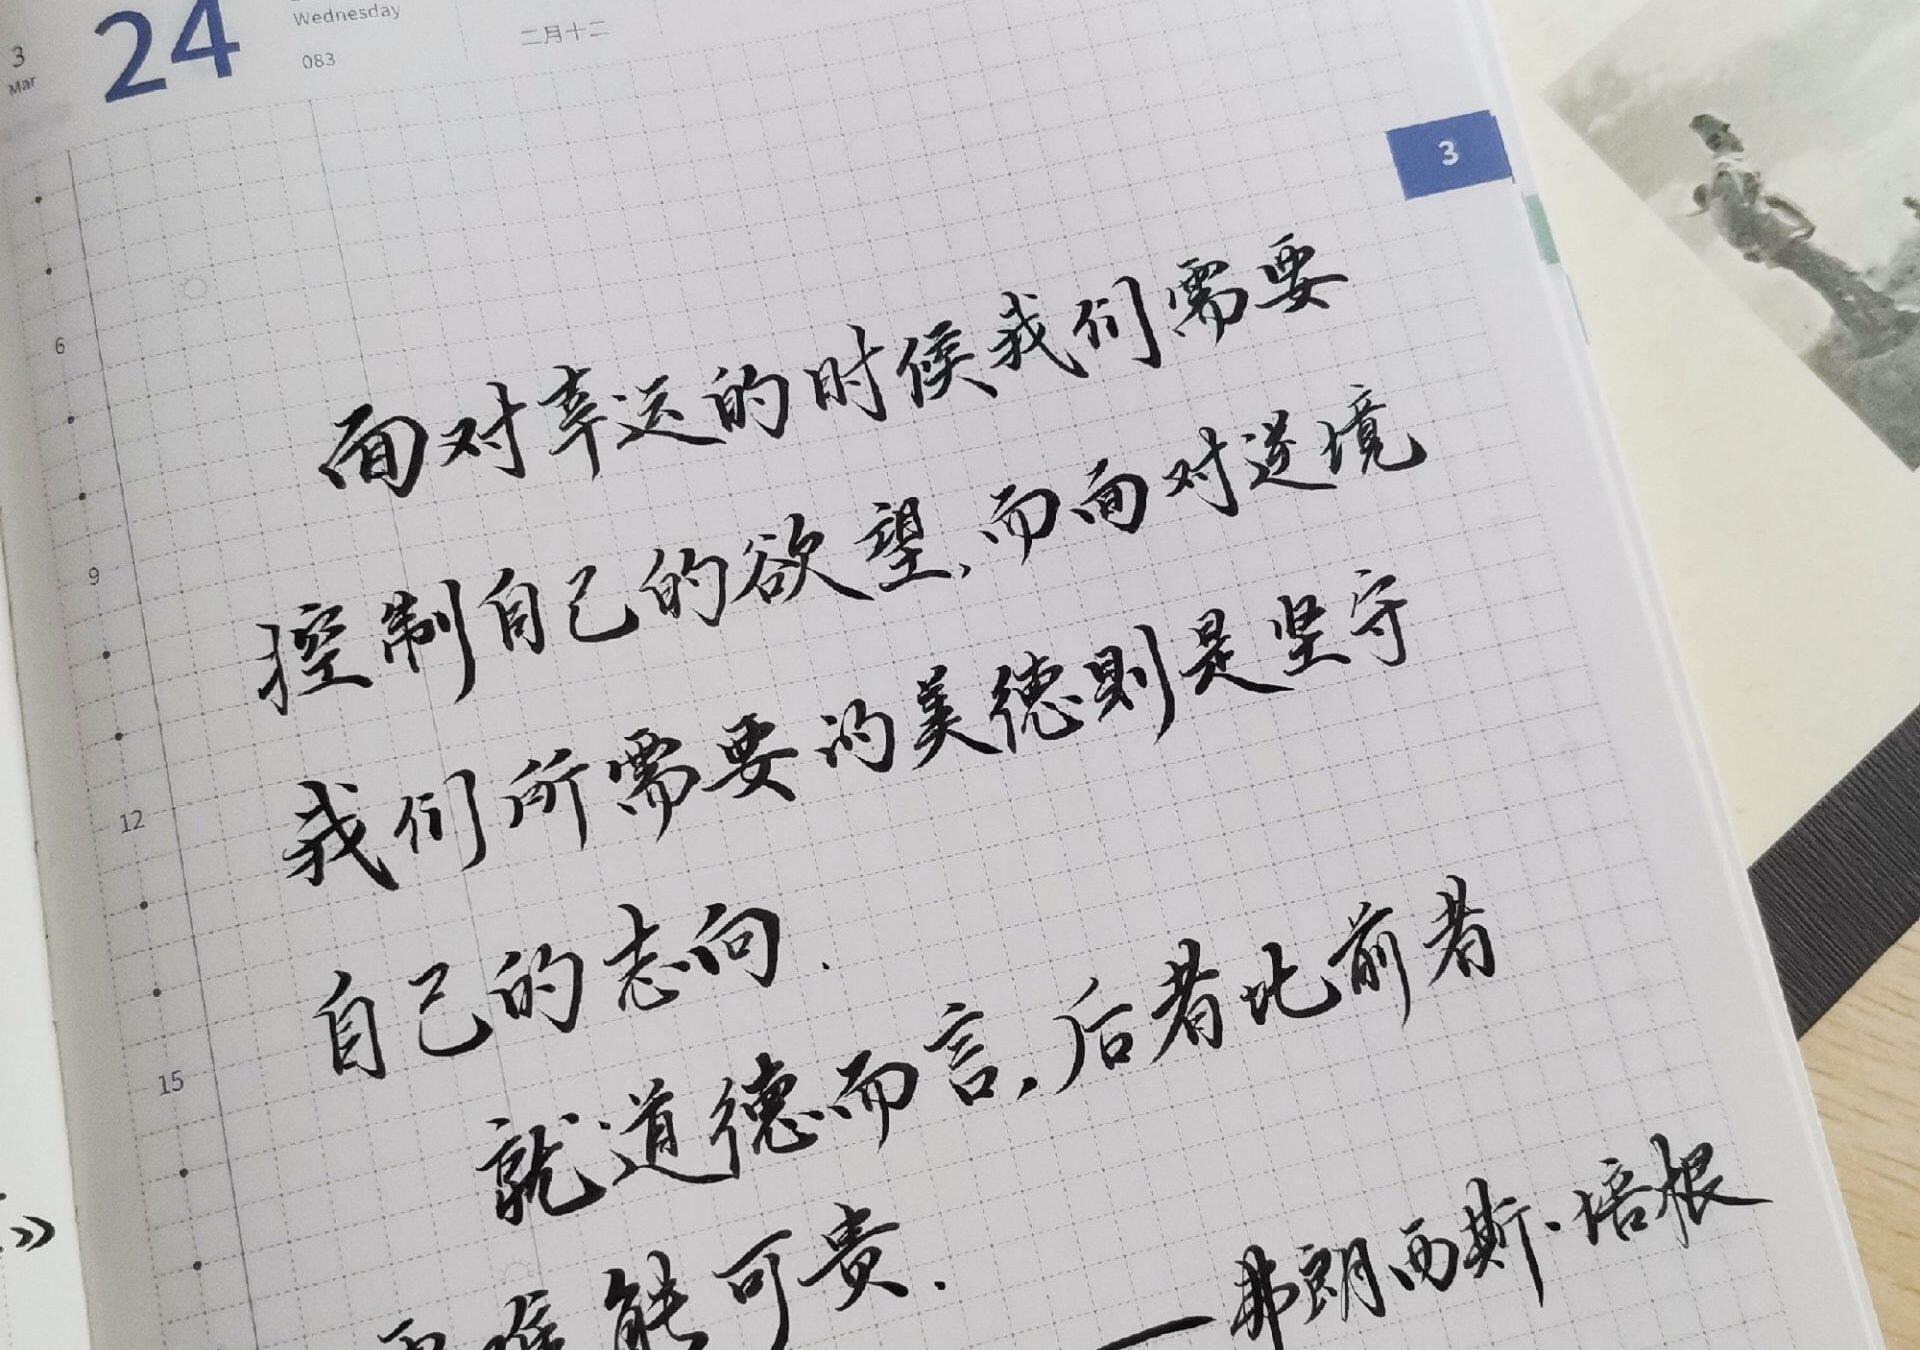 3
Mar
24
Wednesday
083
二月十二
3
6
9
12
15
面对幸运的时候我们需要
控制自己的欲望,而面对逆境
我们所需要的美德则是坚守
自己的志向.
就道德而言,后者比前者
更难能可贵.
——弗朗西斯·培根
》